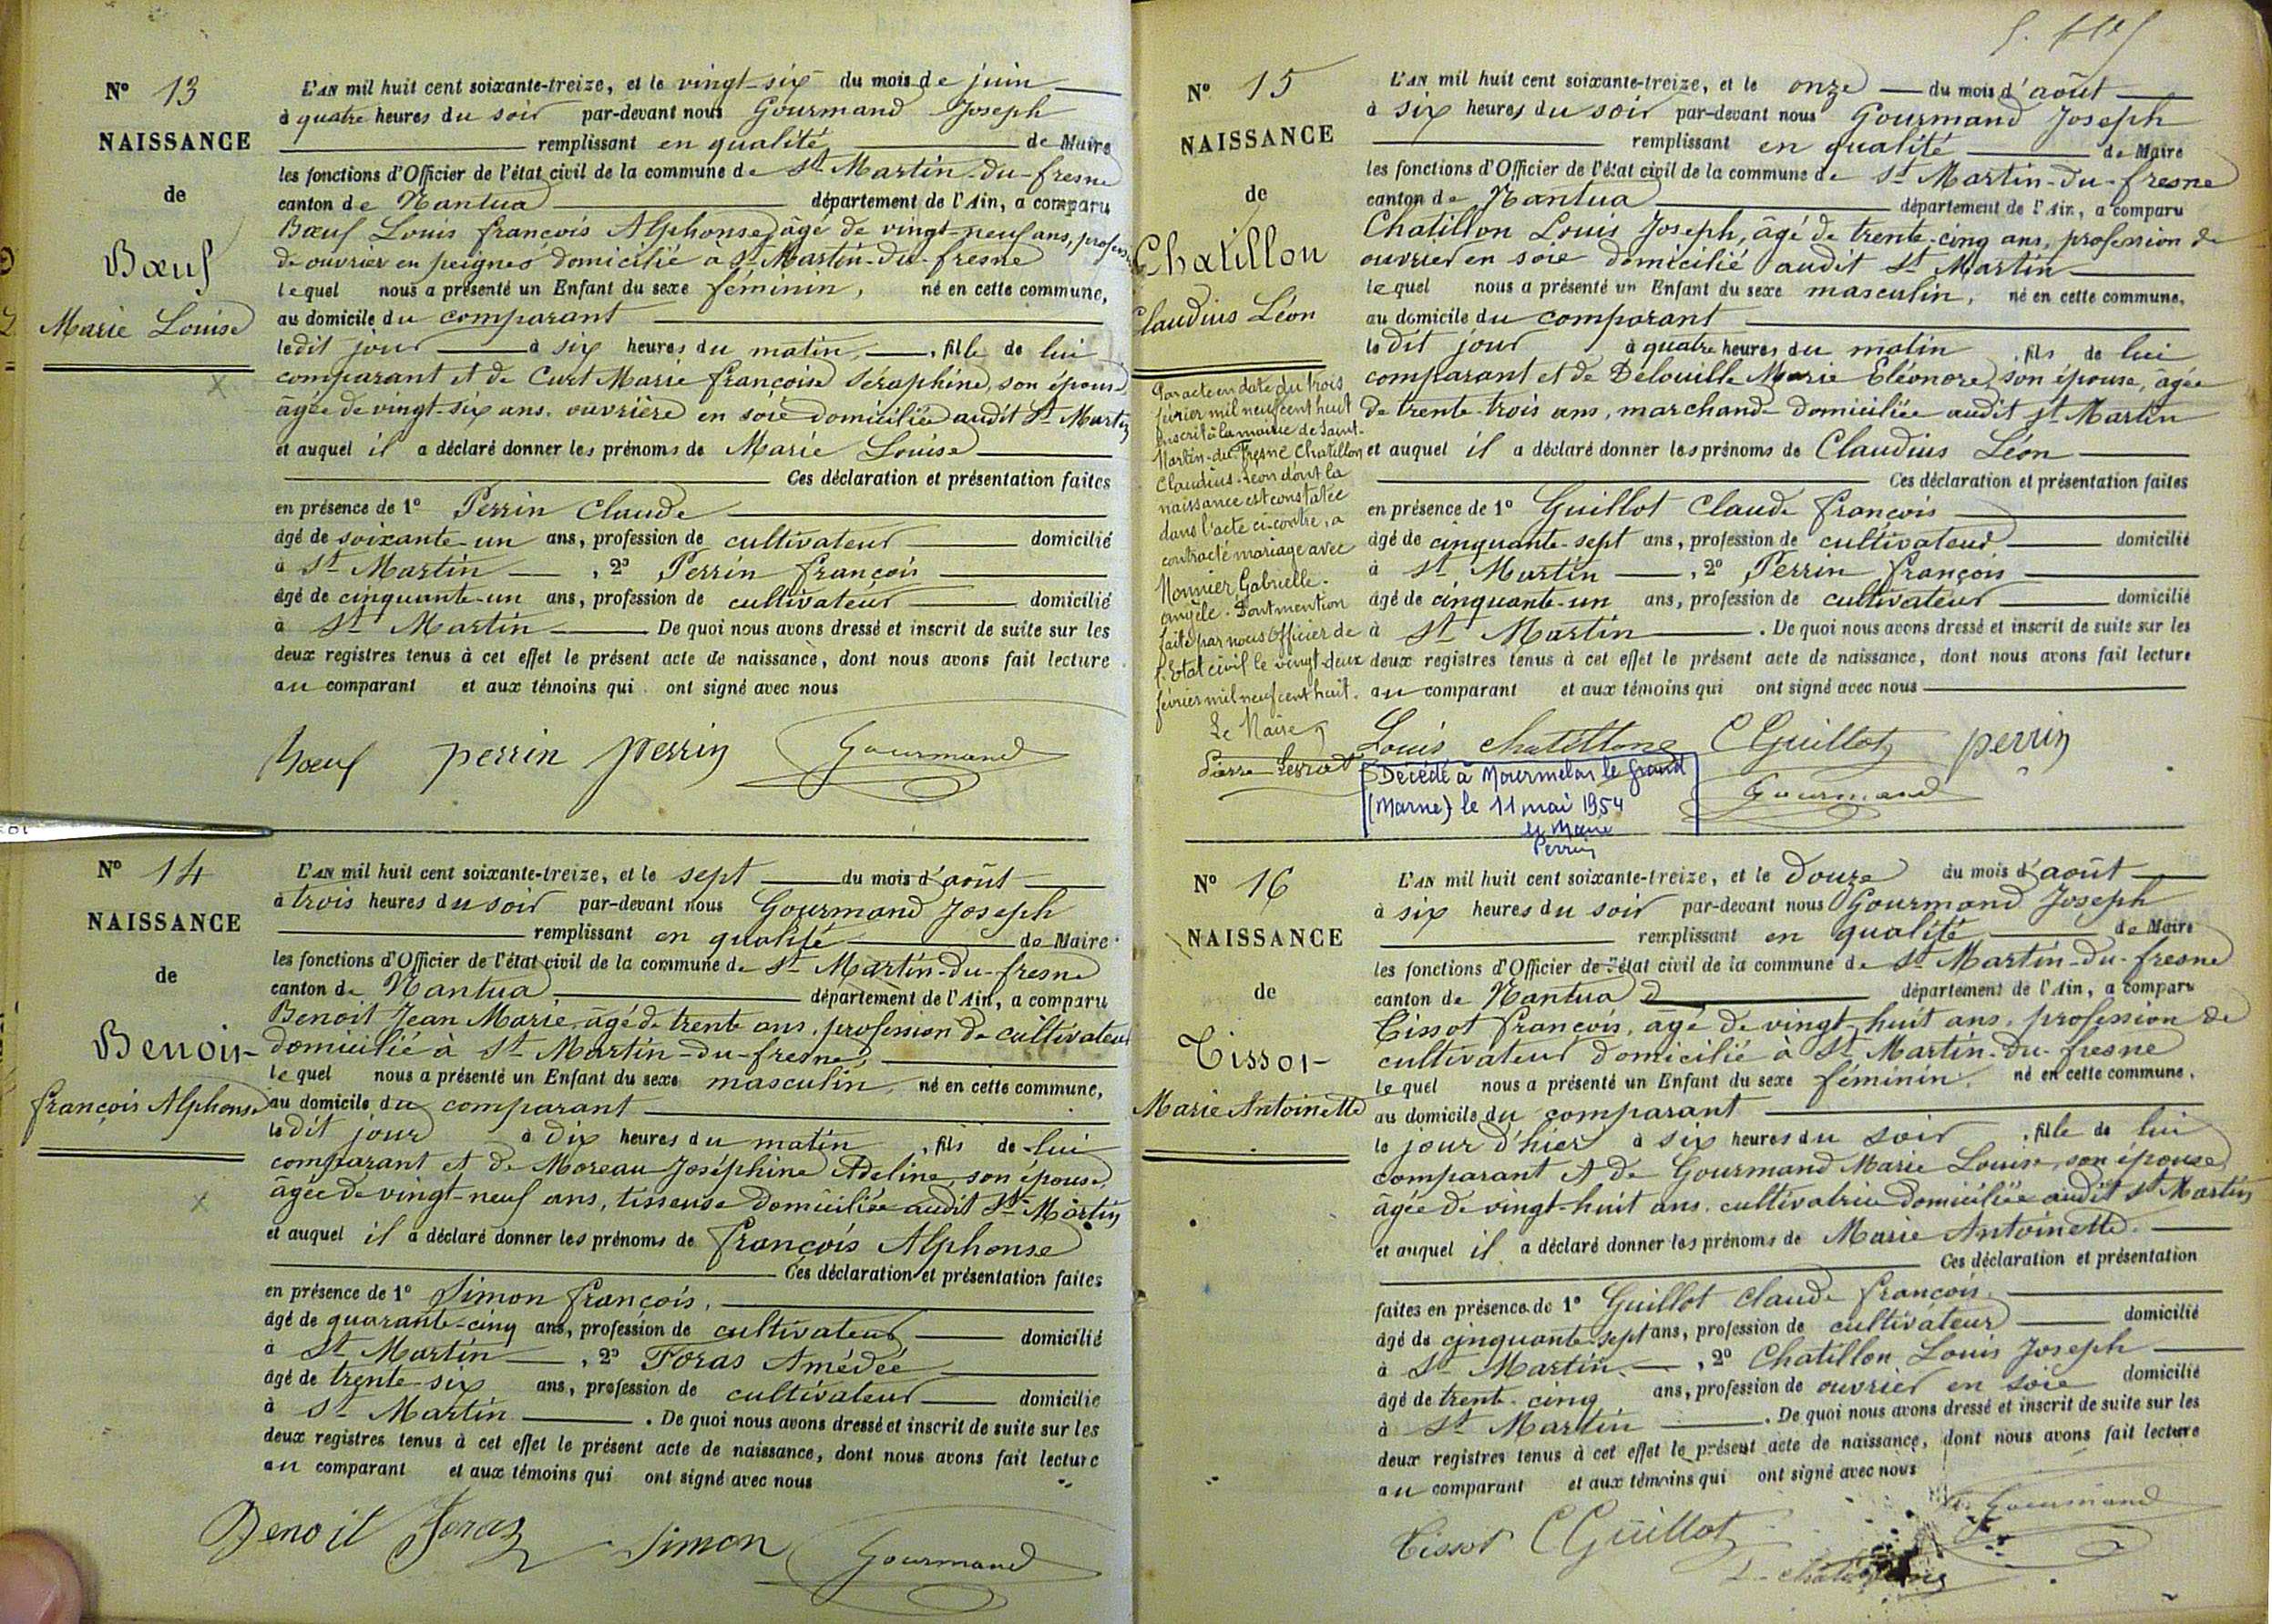 N° 13
NAISSANCE
de
Bœuf
Marie Louise
L'AN mil huit cent soixante-treize, et le vingt-six du mois de juin
à quatre heures du soir par-devant nous Gourmand Joseph
remplissant en qualité de Maire
les fonctions d'Officier de l'état civil de la commune de St Martin-du-fresne
canton de Nantua département de l'Ain, a comparu
Bœuf Louis françois Alphonse, âgé de vingt-neuf ans, profession
de ouvrier en peignes domicilié à St Martin-du-fresne
lequel nous a présenté un Enfant du sexe féminin, né en cette commune,
au domicile du comparant
ledit jour à six heures du matin, fille de lui
comparant et de Curt Marie françoise Séraphine, son épouse,
âgée de vingt-six ans, ouvrière en soie domiciliée audit St Martin
et auquel il a déclaré donner les prénoms de Marie Louise
Ces déclaration et présentation faites
en présence de 1° Perrin Claude
âgé de soixante-un ans, profession de cultivateur domicilié
à St Martin , 2° Perrin françois
âgé de cinquante-un ans, profession de cultivateur domicilié
à St Martin De quoi nous avons dressé et inscrit de suite sur les
deux registres tenus à cet effet le présent acte de naissance, dont nous avons fait lecture
au comparant et aux témoins qui ont signé avec nous
Bœuf perrin perrin Gourmand
N° 14
NAISSANCE
de
Benoit
françois Alphonse
L'AN mil huit cent soixante-treize, et le sept du mois d'août
à trois heures du soir par-devant nous Gourmand Joseph
remplissant en qualité de Maire
les fonctions d'Officier de l'état civil de la commune de St Martin-du-fresne
canton de Nantua département de l'Ain, a comparu
Benoit Jean Marie, âgé de trente ans, profession de cultivateur
domicilié à St Martin-du-fresne,
lequel nous a présenté un Enfant du sexe masculin, né en cette commune,
au domicile du comparant
le dit jour à dix heures du matin , fils de lui
comparant et de Moreau Joséphine Adeline, son épouse,
âgée de vingt-neuf ans, tisseuse domiciliée audit St Martin
et auquel il a déclaré donner les prénoms de françois Alphonse
Ces déclaration et présentation faites
en présence de 1° Simon françois,
âgé de quarante-cinq ans, profession de cultivateur domicilié
à St Martin , 2° Foras Amédée
âgé de trente-six ans, profession de cultivateur domicilié
à St Martin . De quoi nous avons dressé et inscrit de suite sur les
deux registres tenus à cet effet le présent acte de naissance, dont nous avons fait lecture
au comparant et aux témoins qui ont signé avec nous
Benoit foras Simon Gourmand
N° 15
NAISSANCE
de
Chatillon
Claudius Léon
Par acte en date du trois
février mil neuf cent huit
inscrit à la mairie de Saint-
Martin-du-Fresne Chatillon
Claudius-Léon dont la
naissance est constatée
dans l'acte ci-contre, a
contracté mariage avec
Monnier Gabrielle-
angèle. Dont mention
faite par nous Officier de
l'Etat civil le vingt-deux
février mil neuf cent huit.
Le Maire
Pierre
L'AN mil huit cent soixante-treize, et le onze du mois d'août
à six heures du soir par-devant nous Gourmand Joseph
remplissant en qualité de Maire
les fonctions d'Officier de l'état civil de la commune de St Martin-du-fresne
canton de Nantua département de l'Ain, a comparu
Chatillon Louis Joseph, âgé de trente-cinq ans, profession de
ouvrier en soie domicilié audit St Martin
lequel nous a présenté un Enfant du sexe masculin, né en cette commune,
au domicile du comparant
le dit jour à quatre heures du matin , fils de lui
comparant et de Délouille Marie Eléonore, son épouse, âgée
de trente-trois ans, marchande domiciliée audit St Martin
et auquel il a déclaré donner les prénoms de Claudius Léon
Ces déclaration et présentation faites
en présence de 1° Guillot Claude françois
âgé de cinquante-sept ans, profession de cultivateur domicilié
à St Martin , 2° Perrin françois
âgé de cinquante-un ans, profession de cultivateur domicilié
à St Martin . De quoi nous avons dressé et inscrit de suite sur les
deux registres tenus à cet effet le présent acte de naissance, dont nous avons fait lecture
au comparant et aux témoins qui ont signé avec nous
Louis chatillon CGuillot perrin
Gourmand
Décédé à Mourmelon le Grand
(Marne) le 11 mai 1954
le Maire
Perrin
N° 16
NAISSANCE
de
Tissot
Marie Antoinette
L'AN mil huit cent soixante-treize, et le douze du mois d'août
à six heures du soir par-devant nous Gourmand Joseph
remplissant en qualité de Maire
les fonctions d'Officier de l'état civil de la commune de St Martin-du-fresne
canton de Nantua département de l'Ain, a comparu
Tissot françois, âgé de vingt-huit ans, profession de
cultivateur domicilié à St Martin-du-fresne
lequel nous a présenté un Enfant du sexe féminin, né en cette commune,
au domicile du comparant
le jour d'hier à six heures du soir , fille de lui
comparant et de Gourmand Marie Louise, son épouse
âgée de vingt-huit ans, cultivatrice domiciliée audit St Martin
et auquel il a déclaré donner les prénoms de Marie Antoinette.
Ces déclaration et présentation
faites en présence de 1° Guillot Claude françois
âgé de cinquante-sept ans, profession de cultivateur domicilié
à St Martin , 2° Chatillon Louis Joseph
âgé de trente-cinq ans, profession de ouvrier en soie domicilié
à St Martin . De quoi nous avons dressé et inscrit de suite sur les
deux registres tenus à cet effet le présent acte de naissance, dont nous avons fait lecture
au comparant et aux témoins qui ont signé avec nous
Tissot CGuillot Gourmand